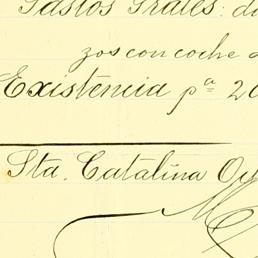 Gastos Grales. d
zos con coche d
Existencia pª 20
Sta. Catalina Oy